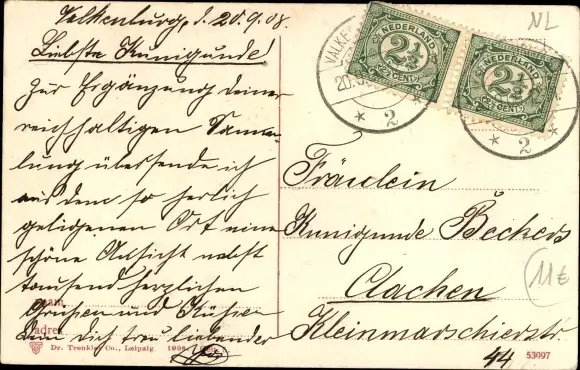 Valkenburg, d. 20.9.08.
Liebste Kunigunde!
Zur Ergänzung deiner
reichhaltigen Samm-
lung übersende ich
aus dem so herlich
gelegenen Ort eine
schöne Ansicht nebst
tausend herzlichen
Grüssen und Küssen
Dein dich treu liebender
NL
VALKE
20.
2
NEDERLAND
2½
CENT
NEDERLAND
2½
CENT
2
Fräulein
Kunigunde Beckers
Aachen
Kleinmarschierstr.
44
11€
Naam
adres
Dr. Trenkler Co., Leipzig. 1908.
53097